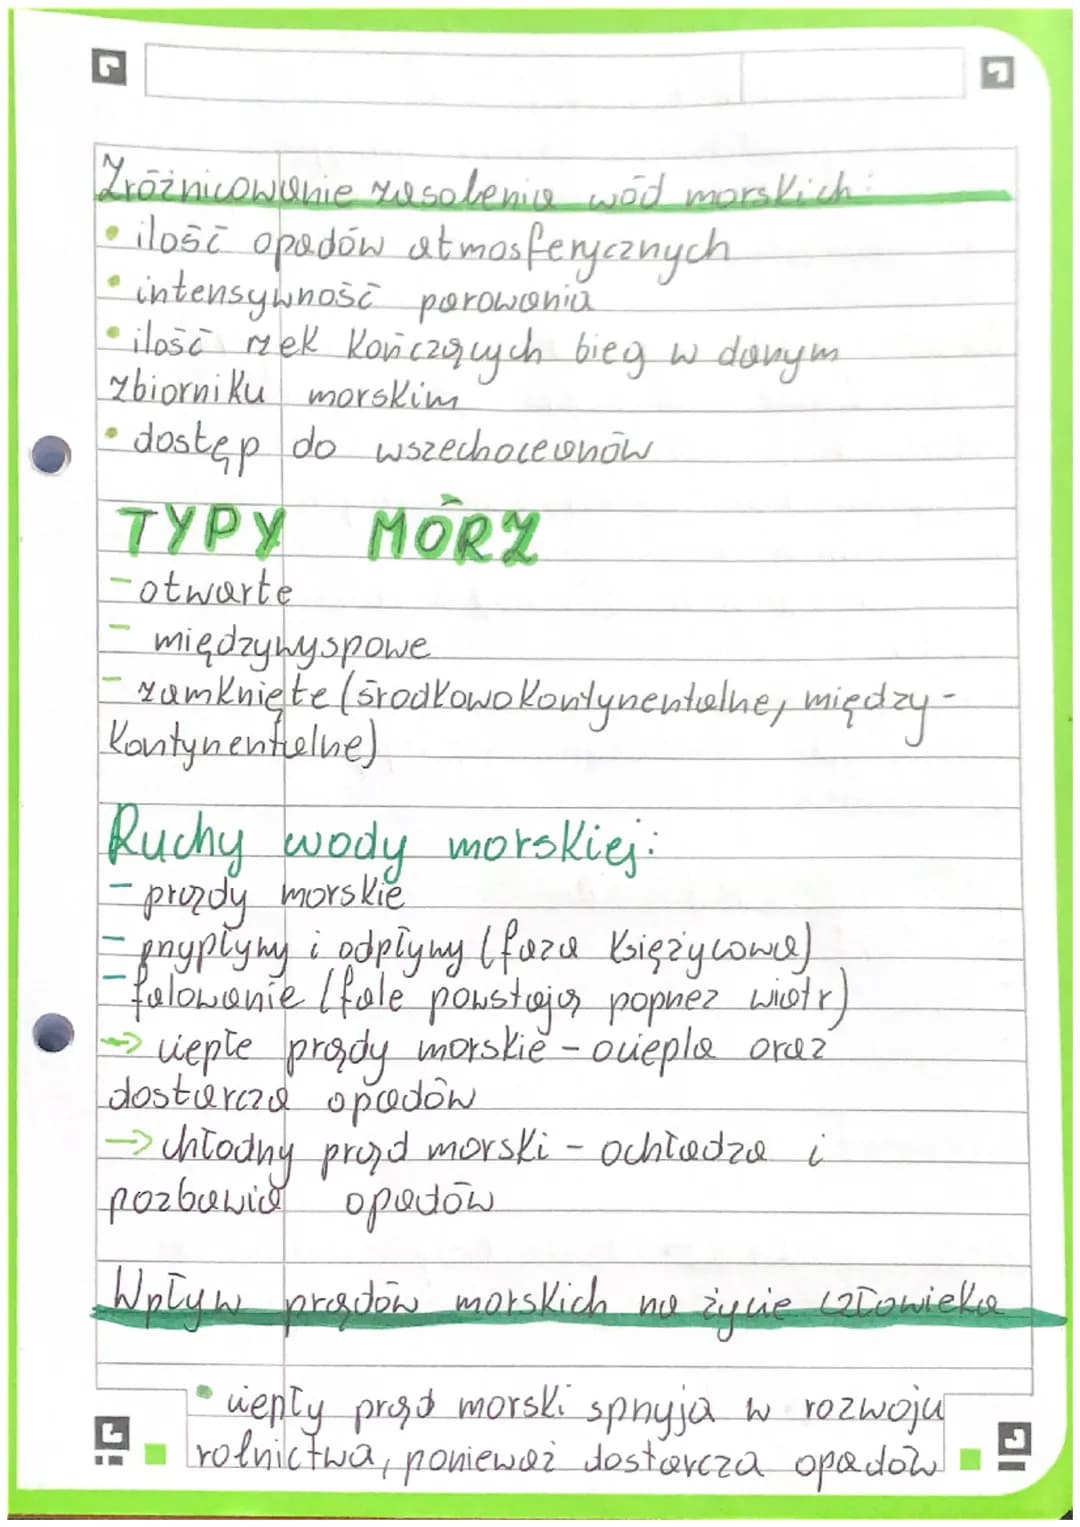 Zróżnicowanie zasolenia wód morskich:
• ilość opadów atmosferycznych
• intensywność parowania
• ilość rzek kończących bieg w danym
zbiorniku morskim
• dostęp do wszechoceanów
TYPY MÓRZ
- otwarte
- międzywyspowe
- zamknięte (środkowokontynentalne, między-
kontynentalne)
Ruchy wody morskiej:
- prądy morskie
- przypływy i odpływy (faza Księżycowa)
- falowanie (fale powstają poprzez wiatr)
→ ciepłe prądy morskie - ociepla oraz
dostarcza opadów
→ chłodny prąd morski - ochładza i
pozbawia opadów
Wpływ prądów morskich na życie człowieka
• ciepły prąd morski sprzyja w rozwoju
rolnictwa, ponieważ dostarcza opadów